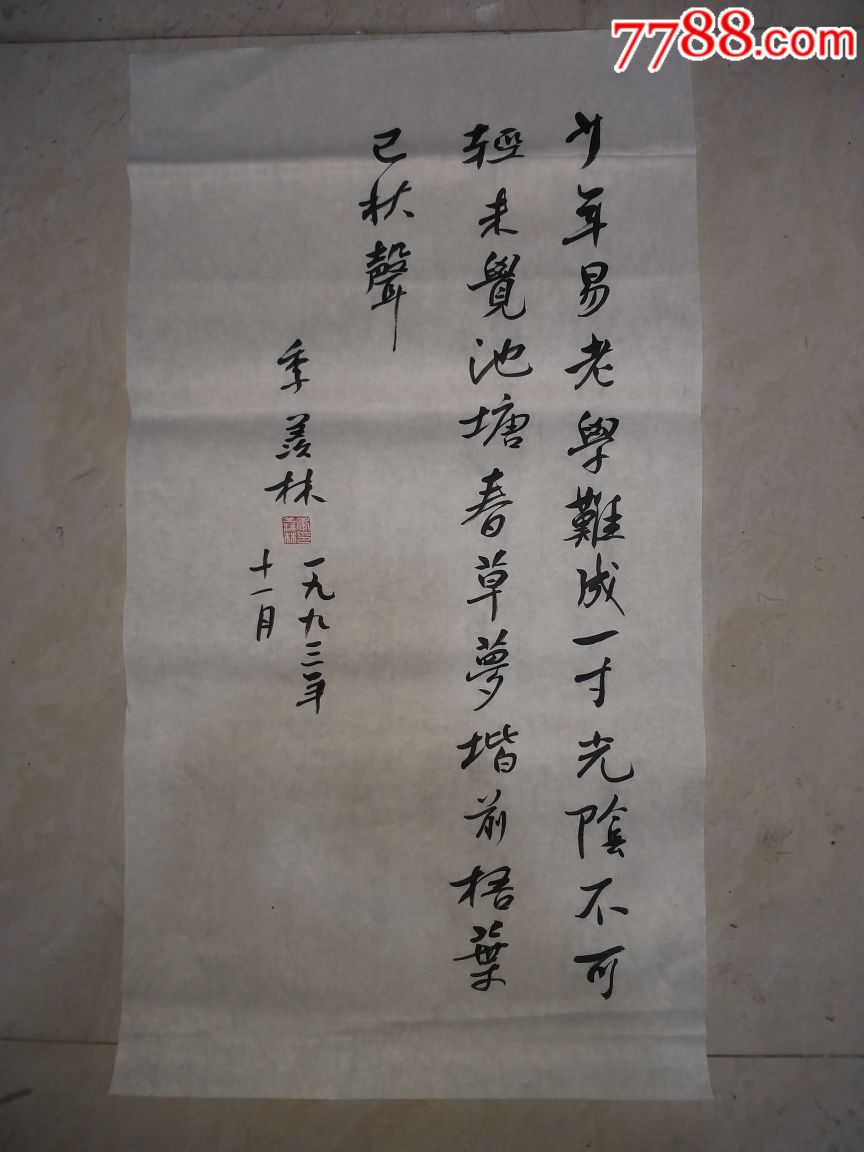 7788.com
少年易老學難成一寸光陰不可
輕未覺池塘春草夢堦前梧葉
已秋聲
季羨林
一九九三年
十一月